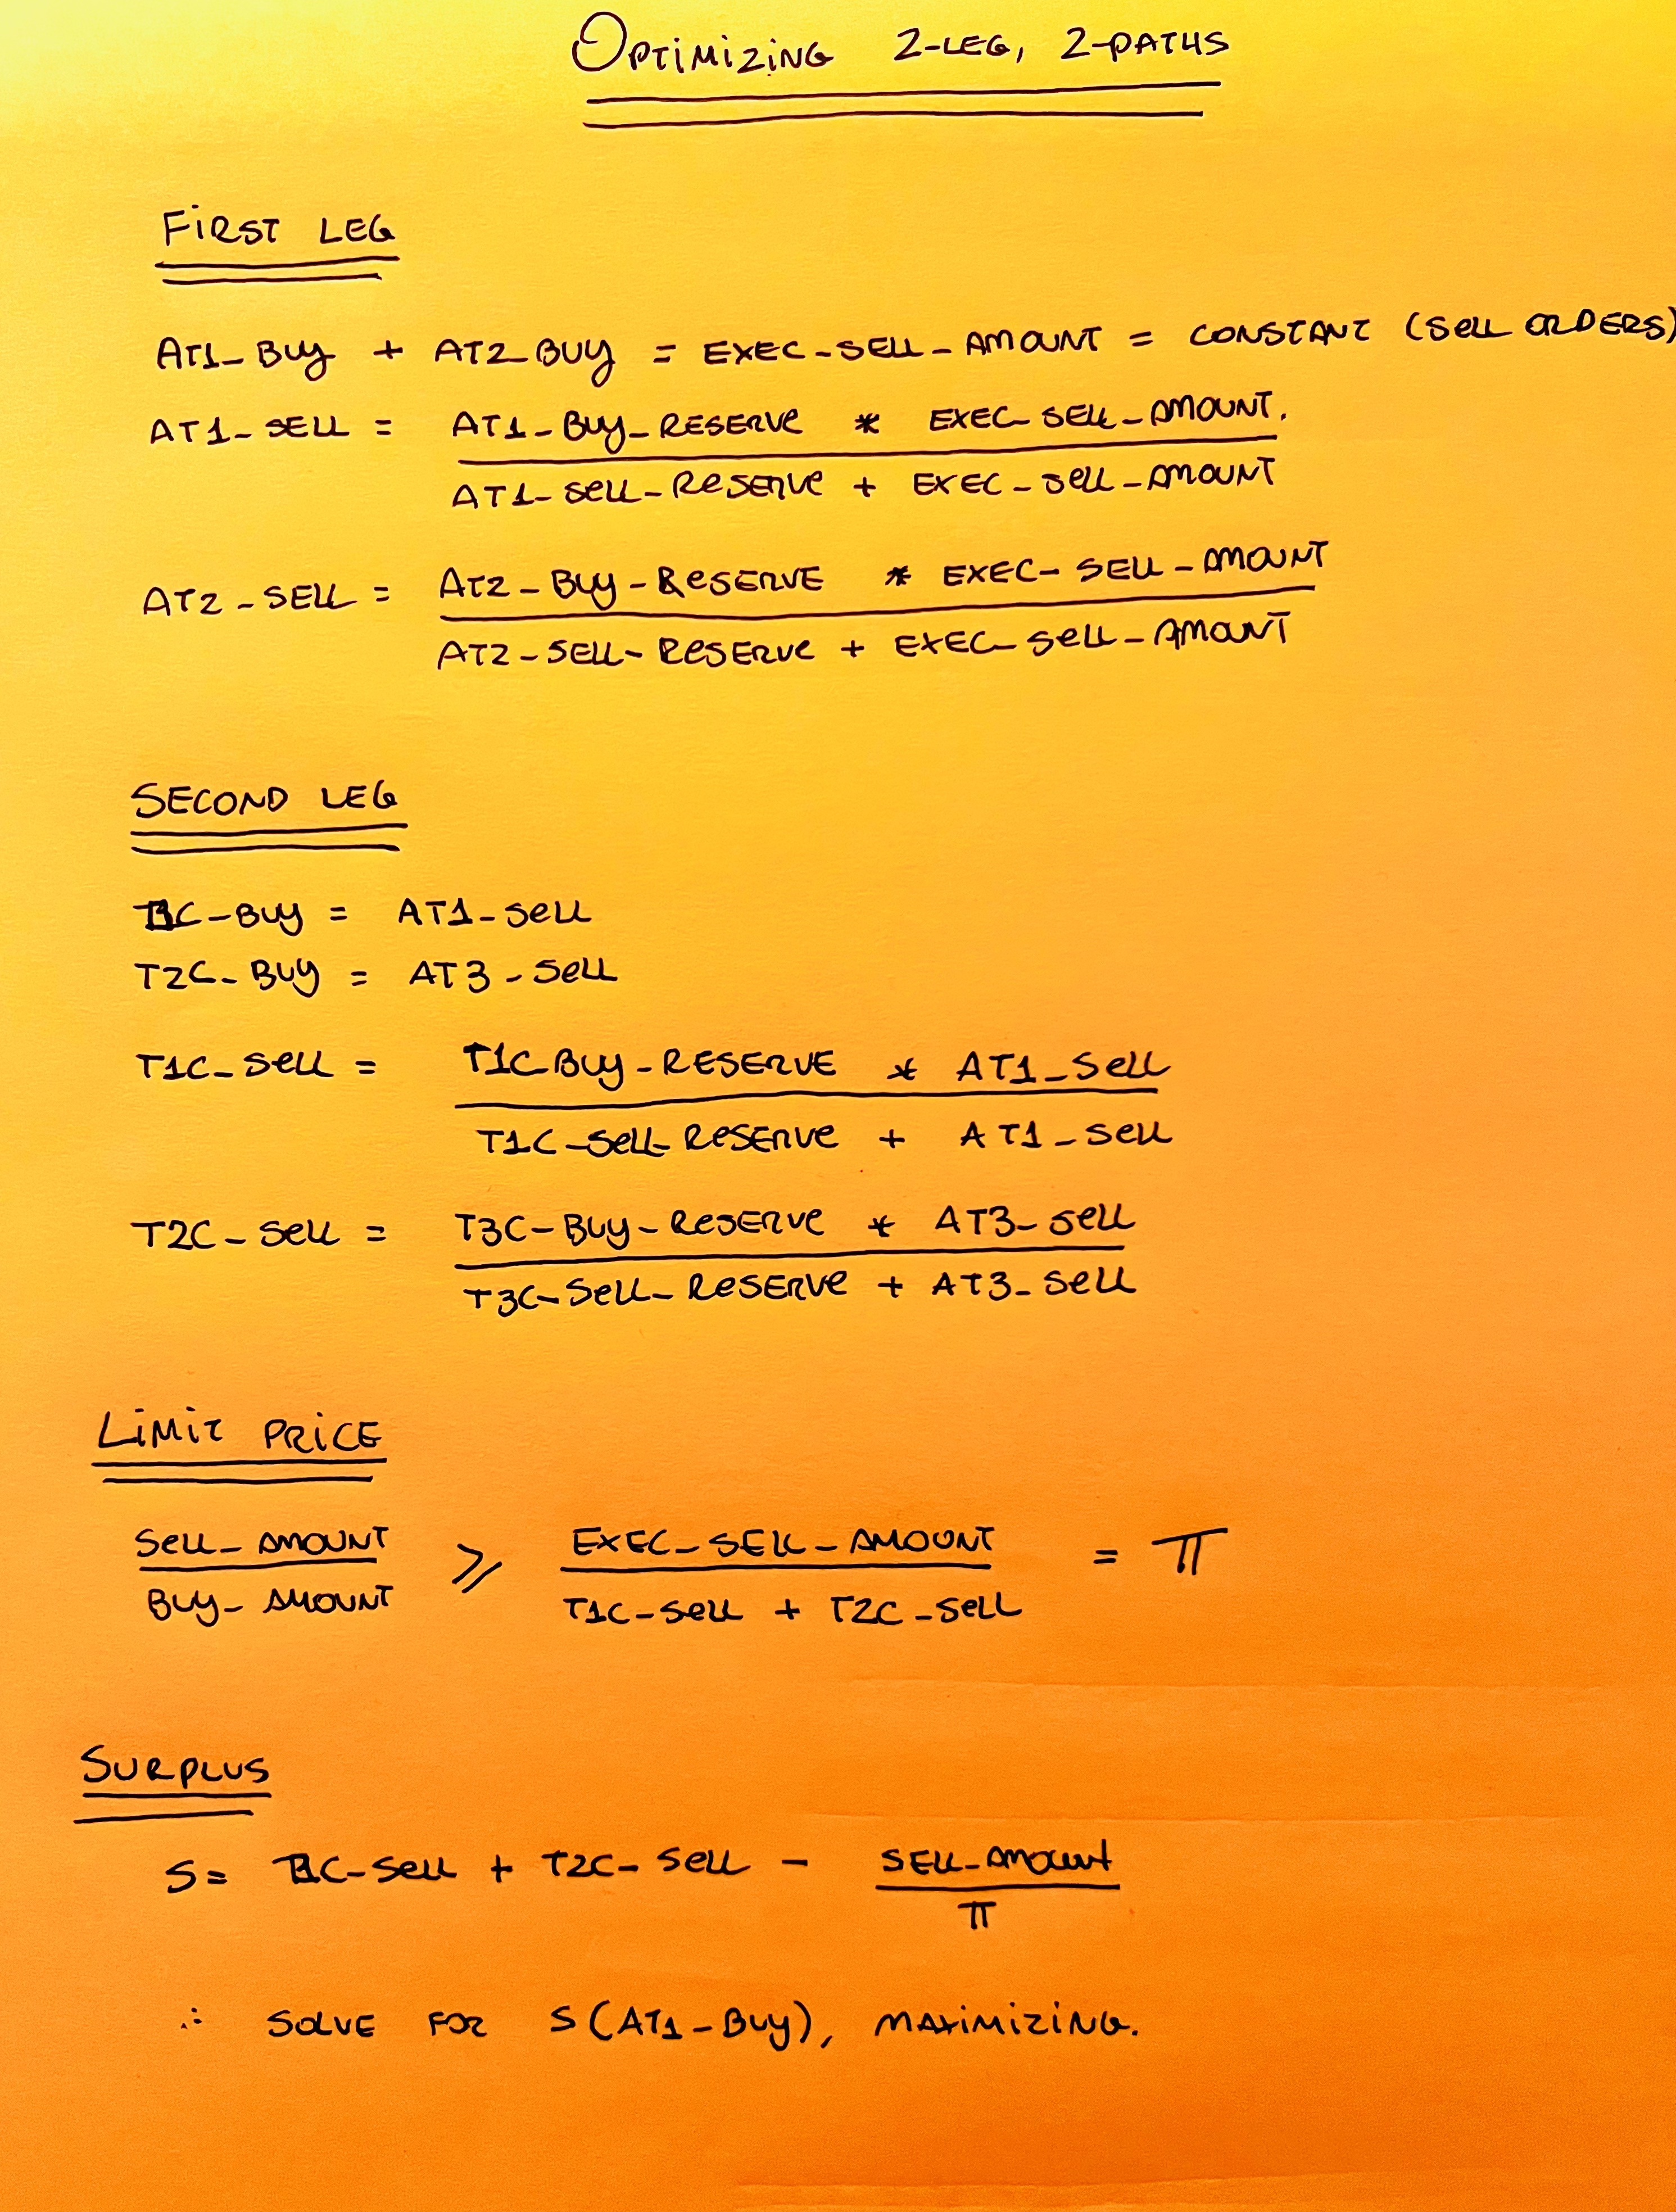 OPTIMIZING 2-LEG, 2-PATHS
FIRST LEG
AT1_BUY + AT2_BUY = EXEC_SELL_AMOUNT = CONSTANT (SELL ORDERS)
AT1_SELL = AT1_BUY_RESERVE * EXEC_SELL_AMOUNT.
AT1_SELL_RESERVE + EXEC_SELL_AMOUNT
AT2_SELL = AT2_BUY_RESERVE * EXEC_SELL_AMOUNT
AT2_SELL_RESERVE + EXEC_SELL_AMOUNT
SECOND LEG
T1C_BUY = AT1_SELL
T2C_BUY = AT3_SELL
T1C_SELL = T1C_BUY_RESERVE * AT1_SELL
T1C_SELL_RESERVE + AT1_SELL
T2C_SELL = T3C_BUY_RESERVE * AT3_SELL
T3C_SELL_RESERVE + AT3_SELL
LIMIT PRICE
SELL_AMOUNT ⩾ EXEC_SELL_AMOUNT = π
BUY_AMOUNT T1C_SELL + T2C_SELL
SURPLUS
S = T1C_SELL + T2C_SELL - SELL_AMOUNT
π
∴ SOLVE FOR S(AT1_BUY), MAXIMIZING.